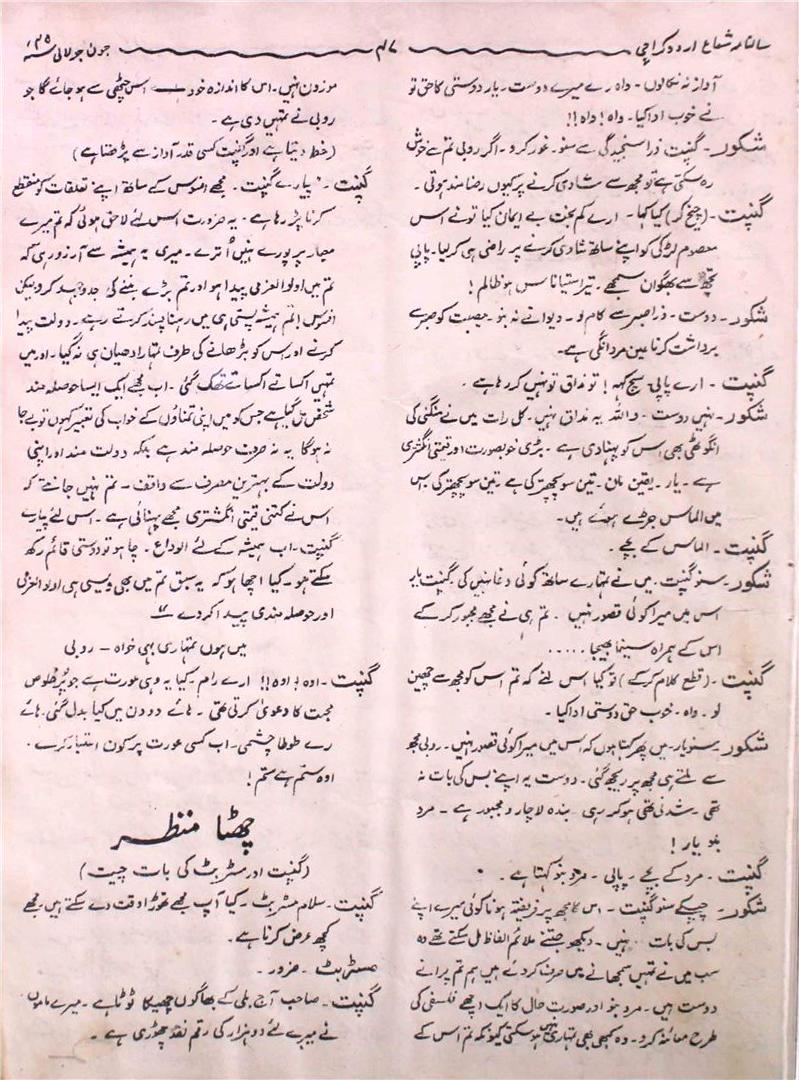 سالنامہ شعاع اردو کراچی
۴۷
جون جولائی ۴۵ء
آواز نہ نکالوں ۔ واہ رے میرے دوست ۔ یار دوستی کا حق تو
نے خوب ادا کیا ۔ واہ! واہ!!
شکور ۔ گنپت ذرا سنجیدگی سے سنو ۔ غور کرو ۔ اگر روبی تم سے خوش
رہ سکتی ہے تو مجھ سے شادی کرنے پر کیوں رضامند ہوتی ۔
گنپت ۔ (چیخ کر) کیا کہا ۔ ارے کم بخت بے ایمان کیا تو نے اس
معصوم لڑکی کو اپنے ساتھ شادی کرنے پر راضی ہی کر لیا ۔ پاپی
تجھ سے بھگوان سمجھے ۔ تیرا ستیاناس ہو ظالم!
شکور ۔ دوست ۔ ذرا صبر سے کام لو ۔ دیوانے نہ بنو ۔ مصیبت کو صبر سے
برداشت کرنا عین مردانگی ہے ۔
گنپت ۔ ارے پاپی سچ کہہ! تو مذاق تو نہیں کر رہا ہے ۔
شکور ۔ نہیں دوست ۔ واللہ یہ مذاق نہیں ۔ کل رات میں نے منگنی کی
انگوٹھی بھی اس کو پہنا دی ہے ۔ بڑی خوبصورت اور قیمتی انگشتری
ہے ۔ یار ۔ یقین مان ۔ تین سو پچھتر کی ہے تین سو پچھتر کی جس
میں الماس جڑے ہوئے ہیں ۔
گنپت ۔ الماس کے بچے ۔
شکور ۔ سنو گنپت ۔ میں نے تمہارے ساتھ کوئی دغا نہیں کی ۔ گنپت یار
اس میں میرا کوئی قصور نہیں ۔ تم ہی نے مجھے مجبور کر کے
اس کے ہمراہ سینما بھیجا .....
گنپت ۔ (قطع کلام کر کے) تو کیا اس لئے کہ تم اس کو مجھ سے چھین
لو ۔ واہ ۔ خوب حق دوستی ادا کیا ۔
شکور ۔ سنو یار ۔ میں پھر کہتا ہوں کہ اس میں میرا کوئی قصور نہیں ۔ روبی مجھ
سے ملتے ہی مجھ پر ریجھ گئی ۔ دوست یہ اپنے بس کی بات نہ
تھی ۔ شدنی تھی ہو کر رہی ۔ بندہ لاچار و مجبور ہے ۔ مرد
بنو یار!
گنپت ۔ مرد کے بچے ۔ پاپی ۔ مرد بنو کہتا ہے ۔
شکور ۔ چپکے سنو گنپت ۔ اس کا مجھ پر فریفتہ ہونا کوئی میرے اپنے
بس کی بات نہیں ۔ دیکھو جتنے ملائم الفاظ مل سکتے تھے وہ
سب میں نے تمہیں سمجھانے میں صرف کر دئے ہیں ہم تم پرانے
دوست ہیں ۔ مرد بنو اور صورت حال کا ایک اچھے فلسفی کی
طرح معائنہ کرو ۔ وہ کبھی بھی تمہاری نہیں ہو سکتی کیونکہ تم اس کے
موزوں نہیں ۔ اس کا اندازہ خود اس چٹھی سے ہو جائے گا جو
روبی نے تمہیں دی ہے ۔
(خط دیتا ہے اور گنپت کسی قدر آواز سے پڑھتا ہے)
گنپت ۔ "پیارے گنپت ۔ مجھے افسوس کے ساتھ اپنے تعلقات کو منقطع
کرنا پڑ رہا ہے ۔ یہ ضرورت اس لئے لاحق ہوئی کہ تم میرے
معیار پر پورے نہیں اُترے ۔ میری یہ ہمیشہ سے آرزو رہی کہ
تم میں اولوالعزمی پیدا ہو اور تم بڑے بننے کی جدوجہد کرو لیکن
افسوس! تم ہمیشہ پستی ہی میں رہنا پسند کرتے رہے ۔ دولت پیدا
کرنے اور اس کو بڑھانے کی طرف تمہارا دھیان ہی نہ گیا ۔ اور میں
تمہیں اکساتے اکساتے تھک گئی ۔ اب مجھے ایک ایسا حوصلہ مند
شخص مل گیا ہے جس کو میں اپنی تمناؤں کے خواب کی تعبیر کہوں تو بے جا
نہ ہوگا یہ نہ صرف حوصلہ مند ہے بلکہ دولت مند اور اپنی
دولت کے بہترین مصرف سے واقف ۔ تم نہیں جانتے کہ
اس نے کتنی قیمتی انگشتری مجھے پہنائی ہے ۔ اس لئے پیارے
گنپت ۔ اب ہمیشہ کے لئے الوداع ۔ چاہو تو دوستی قائم رکھ
سکتے ہو ۔ کیا اچھا ہو کہ یہ سبق تم میں بھی ویسی ہی اولوالعزمی
اور حوصلہ مندی پیدا کر دے ۔"
میں ہوں تمہاری بہی خواہ ۔ روبی
گنپت ۔ اوہ! اوہ!! ارے رام ۔ کیا یہ وہی عورت ہے جو پُرخلوص
محبت کا دعویٰ کرتی تھی ۔ ہائے دو دن میں کیا بدل گئی ۔ ہائے
رے طوطا چشمی ۔ اب کسی عورت پر کون اعتبار کرے ۔
اوہ ستم ہے ستم!
چھٹا منظر
(گنپت اور مسٹر بٹ کی بات چیت)
گنپت ۔ سلام مسٹر بٹ ۔ کیا آپ مجھے تھوڑا وقت دے سکتے ہیں مجھے
کچھ عرض کرنا ہے ۔
مسٹر بٹ ۔ ضرور ۔
گنپت ۔ صاحب آج بلی کے بھاگوں چھینکا ٹوٹا ہے ۔ میرے ماموں
نے میرے لئے دو ہزار کی رقم نقد چھوڑی ہے ۔